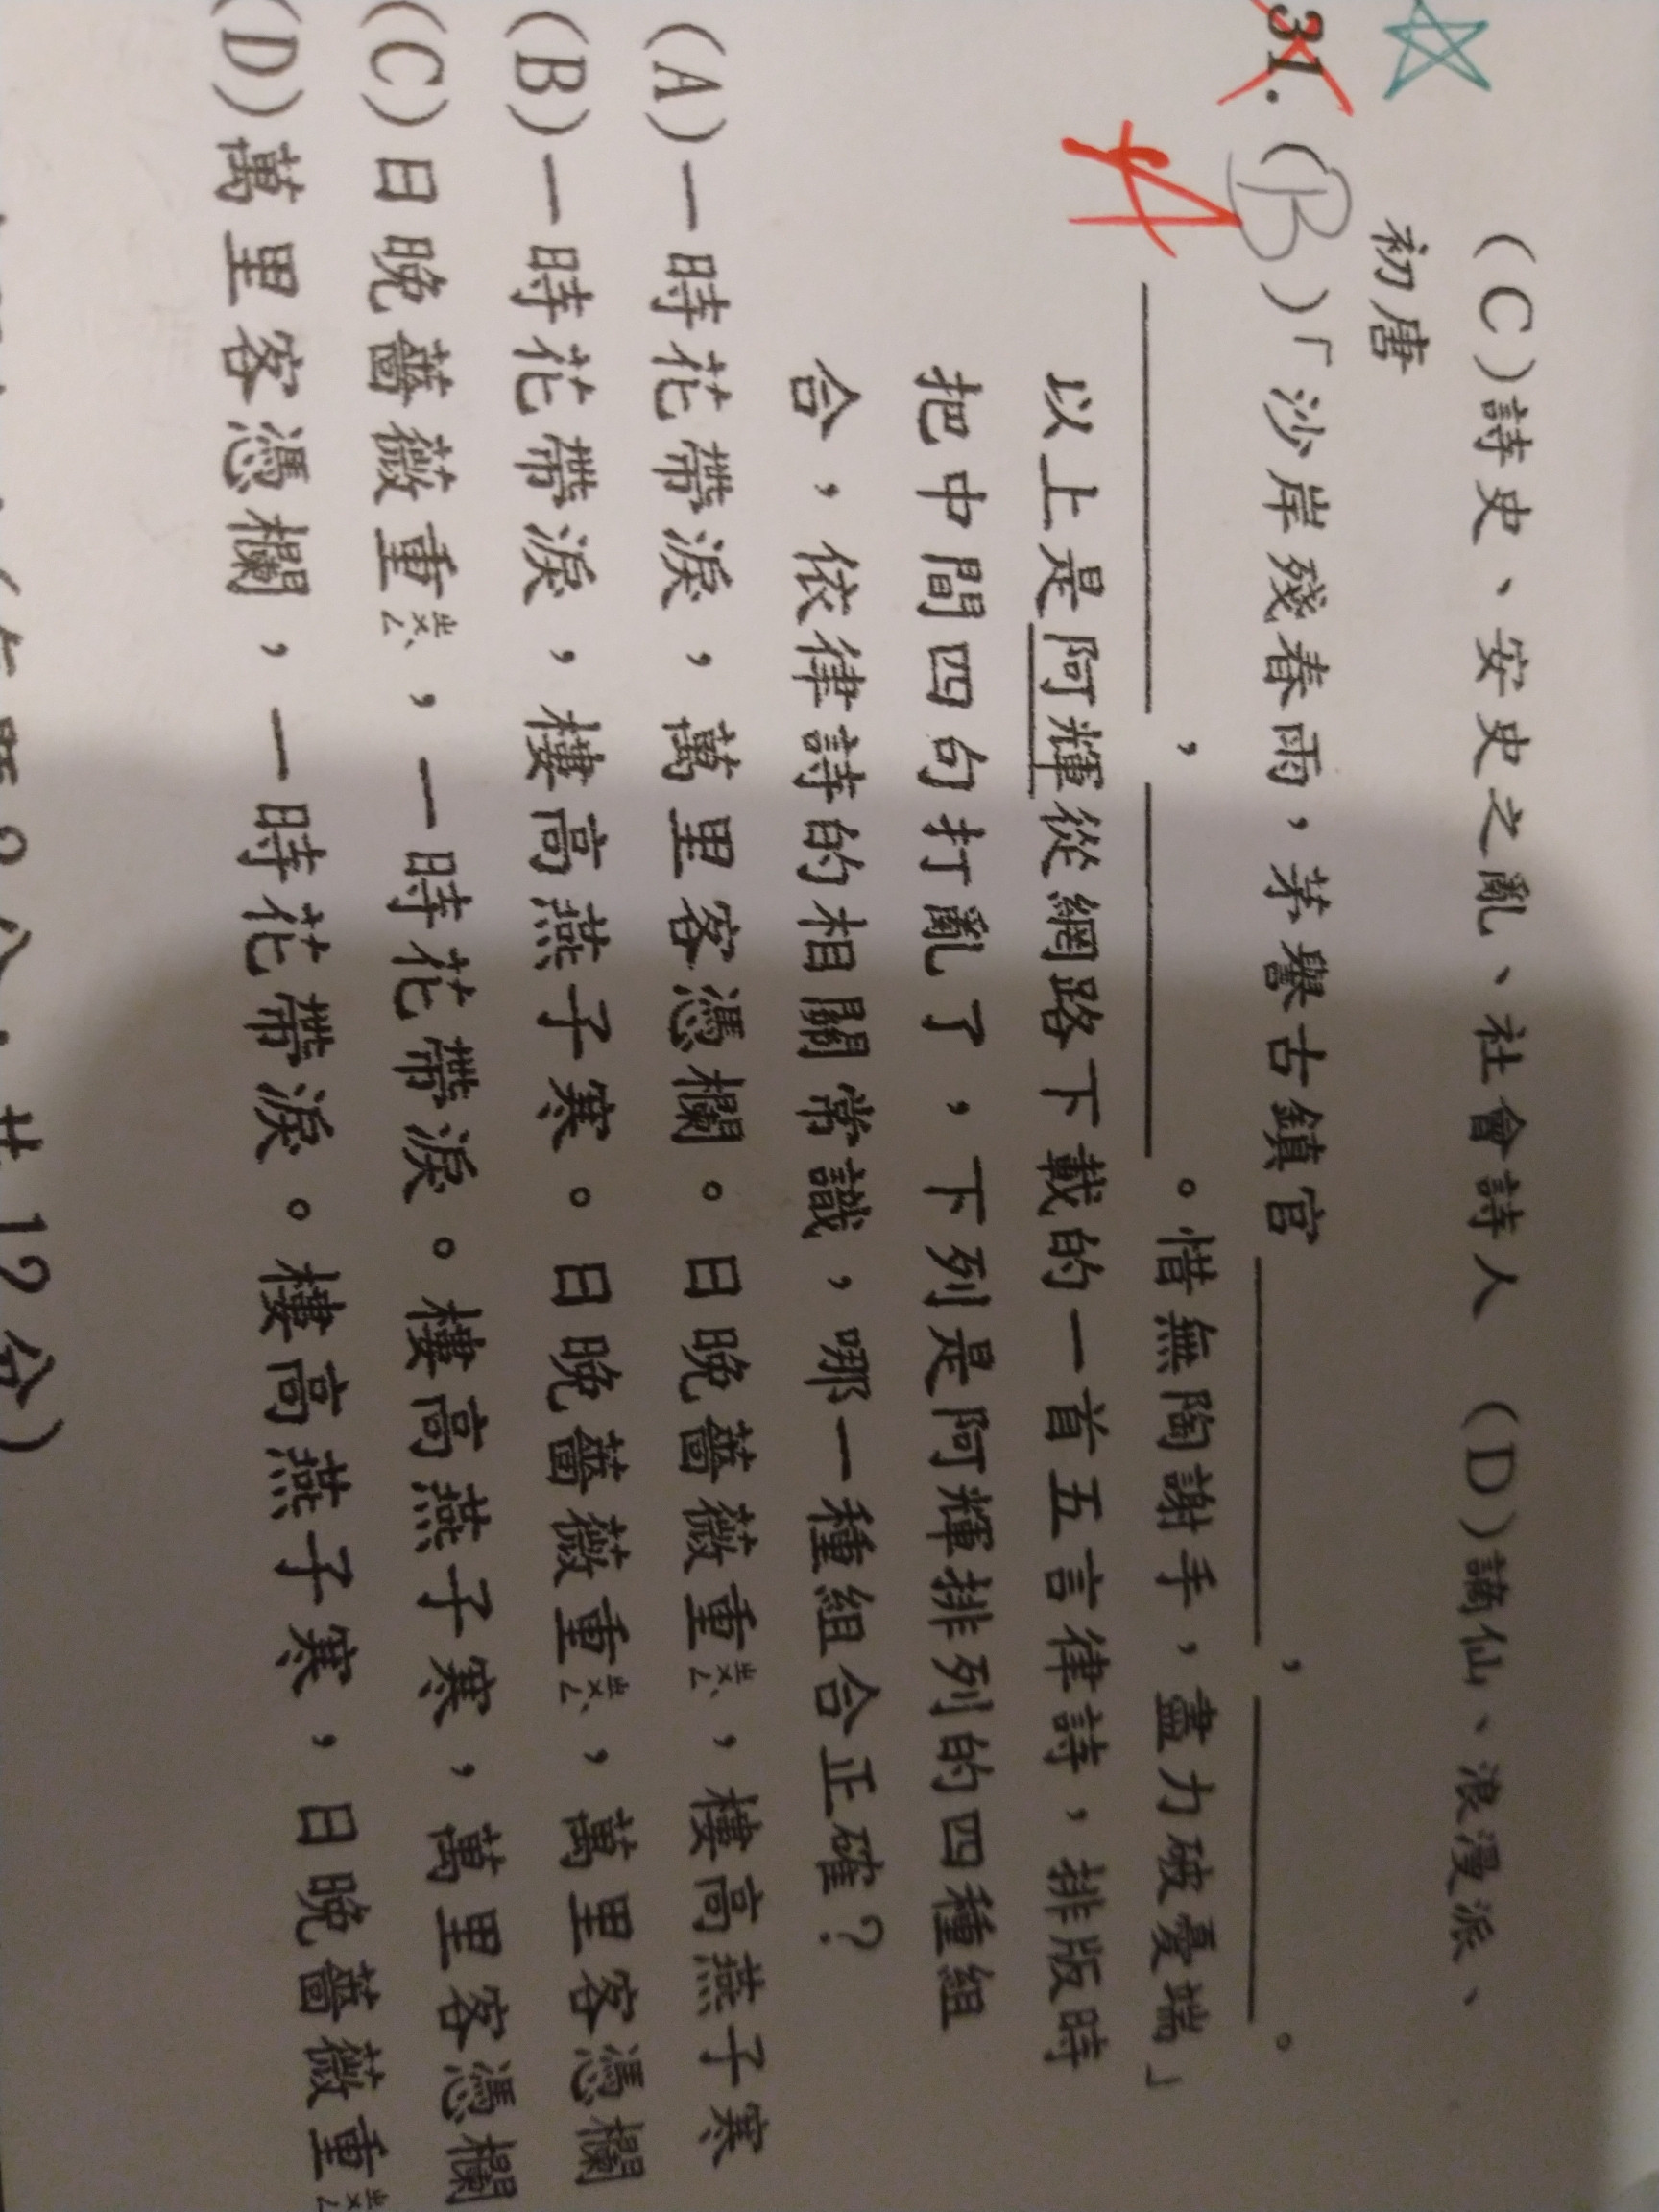 (C)詩史、安史之亂、社會詩人 (D)謫仙、浪漫派、
初唐
31.(B)「沙岸殘春雨,茅簷古鎮官________,________。
________,________。惜無陶謝手,盡力破憂端」
A
以上是阿輝從網路下載的一首五言律詩,排版時
把中間四句打亂了,下列是阿輝排列的四種組
合,依律詩的相關常識,哪一種組合正確?
(A)一時花帶淚,萬里客憑欄。日晚薔薇重ㄓㄨㄥˋ,樓高燕子寒
(B)一時花帶淚,樓高燕子寒。日晚薔薇重ㄓㄨㄥˋ,萬里客憑欄
(C)日晚薔薇重ㄓㄨㄥˋ,一時花帶淚。樓高燕子寒,萬里客憑欄
(D)萬里客憑欄,一時花帶淚。樓高燕子寒,日晚薔薇重ㄓㄨㄥˋ
12分)